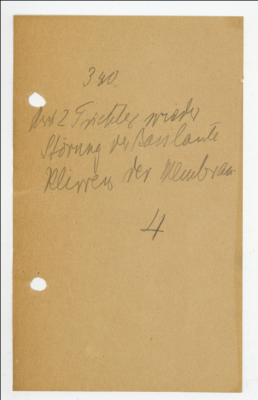 340.
2 Trichter wieder
Störung der Basslaute
Klirren der Membran
4